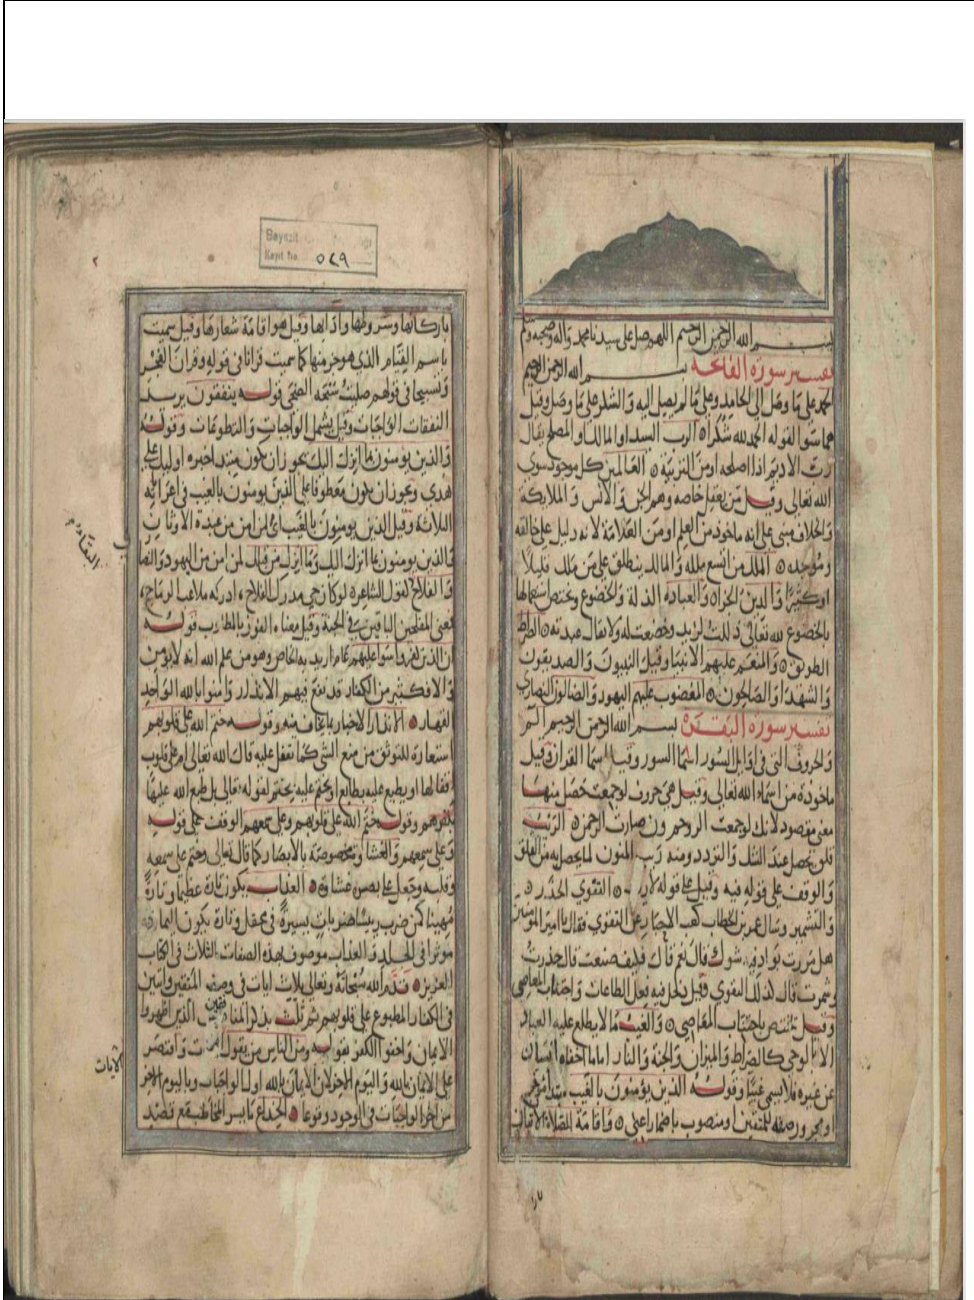 بسم الله الرحمن الرحيم اللهم صل على سيدنا محمد وآله وصحبه وسلم
تفسير سورة الفاتحة بسم الله الرحمن الرحيم
الحمد على ما وصل الى الحامد وعلى ما لم يصل اليه والشكر على ما وصل وقيل
هما سوا لقوله الحمد لله شكرا الرب السيد او المالك او المصلح يقال
رب الاديم اذا اصلحه او من التربية العالمين كل موجود سوى
الله تعالى وقيل من يعقل خاصه وهم الجن والانس والملايكة
والخلاف مبنى على انه ماخوذ من العلم او من العلامة لانه دليل على خالقه
وموجده الملك من اتسع ملكه والمالك ينطلق على من ملك قليلا
او كثيرا والدين الجزاء والعبادة الذلة والخضوع ويختص استعمالها
بالخضوع لله تعالى ذللت لزيد وخضعت له ولا يقال عبدته الصراط
الطريق والمنعم عليهم الانبيا وقيل النبيون والصديقون
والشهدا والصالحون المغضوب عليهم اليهود والضالون النصارى
تفسير سورة البقرة بسم الله الرحمن الرحيم الم
والحروف التى فى اوايل السور اسما السور وقيل اسما القران وقيل
ماخوذة من اسماء الله تعالى وقيل هى حروف لو جمعت حصل منها
معنى مقصود لانك لو جمعت الر وحم ون صارت الرحمن الريب
قلق يحصل عند الشك والتردد ومنه ريب المنون لما يحصل به من القلق
والوقف على قوله فيه وقيل على قوله لا ريب التقوى الحذر
والتشمير وسال عمر بن الخطاب كعب الاحبار عن التقوى فقال يا امير المومنين
هل مررت بواد فيه شوك قال نعم قال فكيف صنعت قال حذرت
وشمرت قال كذلك التقوى وقيل يدخل فيه فعل الطاعات واجتناب المعاصى
وقيل تختص باجتناب المعاصى والغيب ما لا يطلع عليه العباد
الا بالوحى كالصراط والميزان والجنة والنار اما ما اخفاه انسان
عن غيره فلا يسمى غيبا وقوله الذين يؤمنون بالغيب
او مجرور صفة للمتقين او منصوب باضمار اعنى واقامة الصلاة الاتيان
Bayezit
Kayıt No. ٥٢٩
٢
باركانها وشروطها وادابها وقيل هو اقامة شعارها وقيل سميت
باسم القيام الذى هو جز منها كما سميت قرانا فى قوله وقران الفجر
وتسبيحا فى قولهم صليت سبحة الضحى قوله ينفقون يريد
النفقات الواجبات وقيل يشمل الواجبات والتطوعات وقوله
والذين يومنون بما انزل اليك يجوز ان يكون مبتدا خبره اوليك على
هدى ويجوز ان يكون معطوفا على الذين يومنون بالغيب فى اعرابه
الثلاثة وقيل الذين يومنون بالغيب اى لمن امن من عبدة الاوثان
والذين يومنون بما انزل اليك وما انزل من قبلك لمن امن من اليهود والنصا
والفلاح كقول الشاعر لو كان حى مدرك الفلاح ادركه ملاعب الرماح
فعنى المفلحين الباقين فى الجنة وقيل معناه الفوز بالمطلوب قوله
ان الذين كفروا سوا عليهم عام اريد به الخاص وهو من علم الله انه لا يومن
والا فكثير من الكفار قد نفع فيهم الانذار وامنوا بالله الواحد
القهار الانذار الاخبار بما يخاف منه وقوله ختم الله على قلوبهم
استعارة للتوثق من منع الشى كما يقفل عليه قال الله تعالى ام على قلوب
اقفالها او يطبع عليه بطابع او يختم عليه بختم لقوله تعالى بل طبع الله عليها
بكفرهم وقوله ختم الله على قلوبهم وعلى سمعهم الوقف على قوله
وعلى سمعهم والغشاوة مخصوصة بالابصار كما قال تعالى وختم على سمعه
وقلبه وجعل على بصره غشاوة العذاب يكون تارة عظيما وتارة
مهينا كمن ضرب ضربات يسيرة فى محفل وتارة يكون اليما
موثرا فى الجلد والعذاب موصوف بهذه الصفات الثلاث فى الكتاب
العزيز قدم الله سبحانه وتعالى ثلاث ايات فى وصف المتقين وايتين
فى الكفار المطبوع على قلوبهم ثم ثلث بذكر المنافقين الذين اظهروا
الايمان واخفوا الكفر بقوله ومن الناس من يقول واقتصر
على الايمان بالله واليوم الاخر لان الايمان بالله اول الواجبات وباليوم الاخر
من اخر الواجبات فى الوجود وقوعا الخداع قصد
الايات